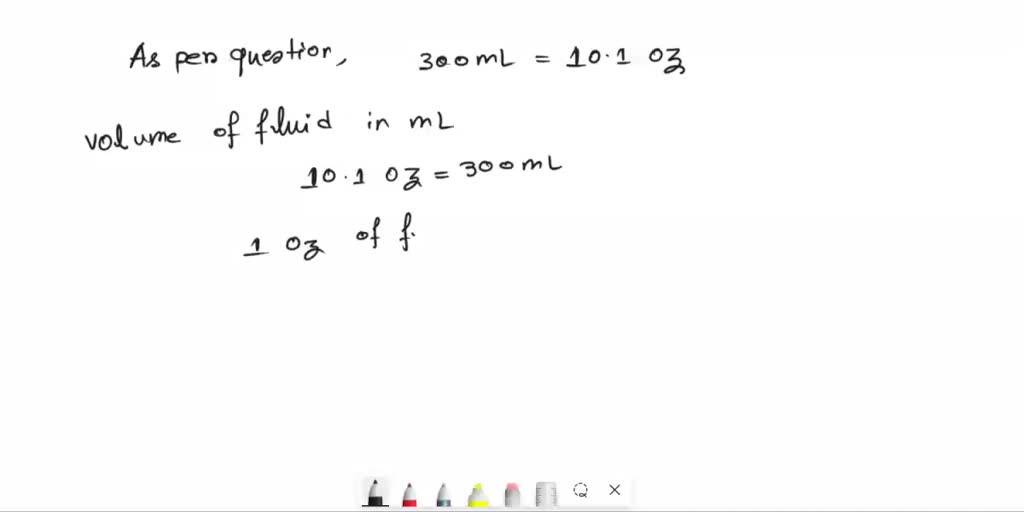 As per question, 300mL = 10.1 oz
volume of fluid in mL
10.1 oz = 300mL
1 oz of f.